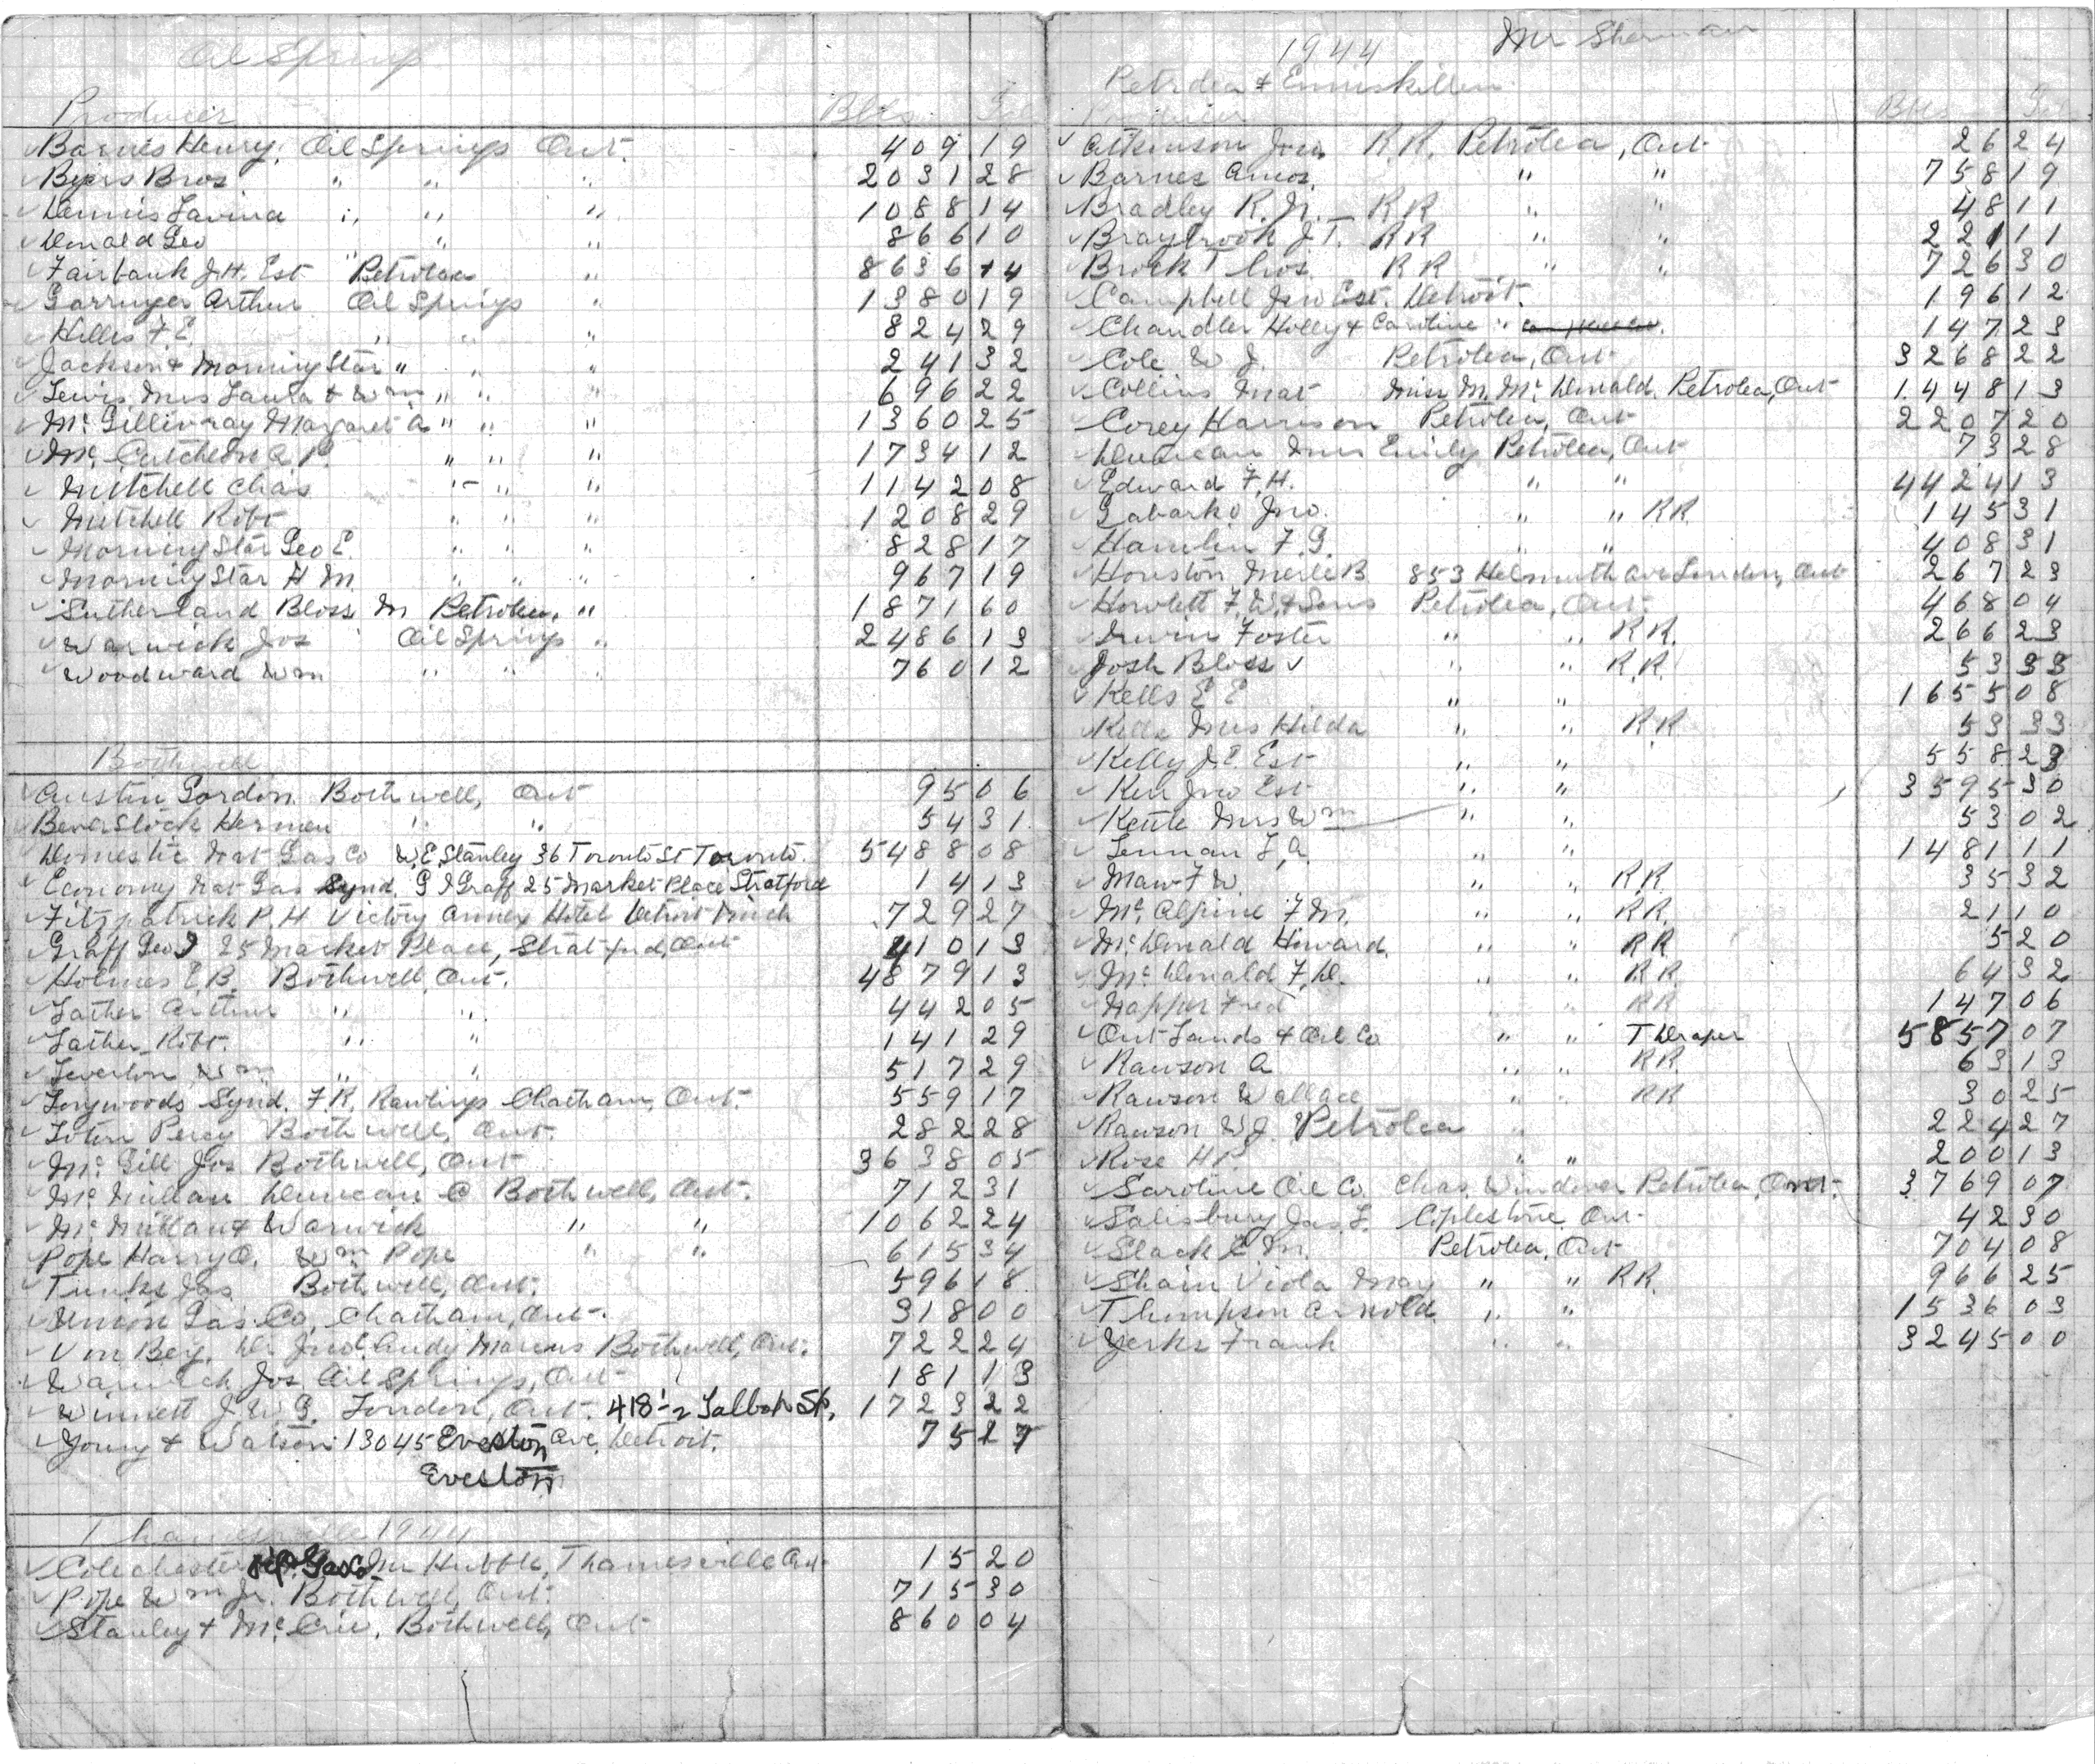 Oil Springs
Producer Bbls Gal
Barnes Henry, Oil Springs Ont. 409 19
Byers Bros. " " " 2031 28
Dennis Lavina " " " 1088 14
Donald Geo " " " 866 10
Fairbank J.H. Est Petrolea " 8636 14
Garruyer Arthur Oil Springs " 1380 19
Hillis F E. " " " 824 29
Jackson & MorningStar " " " 241 32
Lewis Mrs Laura & Wm " " " 696 22
Mc Gillivray Margaret A " " " 1360 25
Mc Cutcheon A. P. " " " 1734 12
Mitchell Chas " " " 1142 08
Mitchell Robt " " " 1208 29
MorningStar Geo E. " " " 828 17
MorningStar H M. " " " 967 19
Sutherland Bloss M Petrolea, " 1871 60
Warwick Jos Oil Springs " 2486 13
Woodward Wm " " " 760 12
Bothwell
Austin Gordon Bothwell, Ont 95 06
Beverslock Hermen " " 54 31
Domestic Nat Gas Co W.E. Stanley 36 Toronto St Toronto. 5488 08
Economy Nat Gas Synd. G J Graff 25 Market Place Stratford 14 13
Fitzpatrick P. H Victory Annex Hotel Detroit Mich 729 27
Graff Geo J 25 Market Place, Stratford, Ont 410 13
Holmes E.B. Bothwell, Ont. 4879 13
Lather Arthur " " 442 05
Lather Robt. " " 141 29
Leverton Wm " " 517 29
Longwoods Synd. F.R. Rawlings Chatham, Ont. 559 17
Lotan Percy Bothwell, Ont. 282 28
Mc Gill Jos Bothwell, Ont 3638 05
Mc Millan Duncan C Bothwell, Ont. 712 31
Mc Millan & Warwick " " 1062 24
Pope Harry O. Wm Pope " " 615 34
Tunks Jas Bothwell, Ont. 596 18
Union Gas Co, Chatham, Ont. 318 00
Von Bey, Dr Jno Candy Marcus Bothwell, Ont. 722 24
Warwick Jos Oil Springs, Ont 181 13
Winnett J. W. G. London, Ont. 418 1/2 Talbot St, 1723 22
Young & Watson 13045 Eveston Ave, Detroit. 75 27
Eveston
Thamesville 1944
Colechester Oil & Gas Co Jm Hubble, Thamesville Ont 15 20
Pope Wm Jr. Bothwell, Ont. 715 30
Stanley & Mc Crie, Bothwell, Ont 860 04
1944 Mr Sherman
Petrolea & Enniskillen
Producer Bbls Gal
Atkinson Jno. R.R. Petrolea, Ont 26 24
Barnes Amos, " " 758 19
Bradley R. Jr. R R " " 48 11
Braybrook J T. R R " " 221 11
Brock Thos. R R " " 726 30
Campbell Jno Est. Detroit. 196 12
Chandler Holly & Caroline " 147 23
Cole W J. Petrolea, Ont 3268 22
Collins Mat Miss M. Mc Donald Petrolea, Ont 1448 13
Corey Harrison Petrolea, Ont 2207 20
Duncan Mrs Emily Petrolea, Ont 73 28
Edward F. H. " " 4424 13
Gabarko Jno. " " RR 145 31
Hamlin F. G. " " 408 31
Houston Merle B 853 Helmuth Ave London, Ont 267 23
Howlett F. W. & Sons Petrolea, Ont. 468 04
Irwin Foster " " R.R. 266 23
Josh Bloss " " R.R. 53 33
Kells E E " " 1655 08
Kells Mrs Hilda " " R R 53 33
Kelly J. E. Est " " 558 23
Kerr Jno Est " " 3595 30
Kettle Mrs Wm " " 53 02
Lennan L, A. " " 1481 11
Maw F W. " " R.R. 35 32
Mc Alpine F M. " " R.R. 21 10
Mc Donald Howard. " " RR 5 20
Mc Donald F. D. " " R.R. 64 32
Napper Fred " " RR 147 06
Ont Lands & Oil Co " " T Draper 5857 07
Rawson A " " RR. 63 13
Rawson Wallace " " RR 30 25
Rawson W J. Petrolea " 224 27
Rose H P. " " 200 13
Saroline Oil Co. Chas. Windover Petrolea, Ont. 3769 07
Salisbury Jas L. Coplestone, Ont. 42 30
Slack E M. Petrolea, Ont 704 08
Shain Viola May " " R R. 966 25
Thompson Arnold " " 1536 03
Yerks Frank " " 3245 00